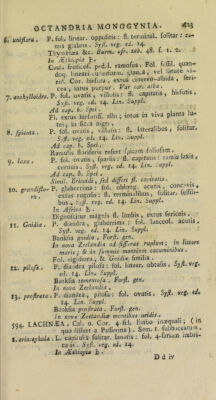 OCTANDRIA MONOGYNIA. 423
6. uniflora. P. fol. linear. oppositis: fl. terminal. solitar: ra-
mis glabris. Syst. veg. ed. 14.
Thymelæa &c. Burm. afr. 48. f. 1. 2.
In Æthiopia ♄.
Caul. fruticof. ped.l. ramosus. Fol. sessil. quan-
doq. lineari-
Cor. hirsuta, extus cinereo-albida, seri-
cea, intus purpur. Var cor. alba.
7. anthylloides. P. fol. ovatis, villosis: fl. capitatis, hirsutis.
Syst. veg. ed. 14. Lin. Suppl.
Ad cap. b. Spei.
Fl. extus hirsuti, albi; intus in viva planta lu-
tei, in sicca nigri.
8. spicata. P. fol. ovatis, villosis: fl. lateralibus, solitar.
Syst. veg. ed. 14. Lin. Suppl.
Ad cap. b. Spei.
Ramulis floriferis refert spicam foliosam.
9. laxa. P. fol. ovatis, sparsis: fl. capitatis: ramis laxis
Syst. veg. ed. 14. Lin. Suppl.
Ad cap. b. Spei.
Simil. Ericoidi, sed differt fl. capitatis.
10. grandiflora. P. glaberrima: fol. oblong. acutis, concavis,
extus rugosis: fl. terminalibus, solitar. sessili-
bus. Syst. veg. ed. 14. Lin. Suppl.
In Africa ♄.
Dignoscitur magnis fl. limbis, extus sericeis.
11. Gnidia. P. diandra, glaberrima: fol. lanceol. acutis.
Syst. veg. ed. 14. Lin. Suppl.
Banksia gnidia. Forst. gen.
In nova Zelandia ad fissuras rupium; in littore
maris; & in summis montium cacuminibus.
Fol. rigidiora, & Gnidiæ similia.
12. pilosa. P. diandra pilosa: fol. linear. obtusis. Syst. veg.
ed. 14. Lin. Suppl.
Banksia tomentosa. Forst. gen.
In nova Zelandia.
13. prostrata. P. diandra, pilosa: fol. ovatis. Syst. veg. ed.
14. Lin. Suppl.
Banksia prostrata. Forst. gen.
In novæ Zelandiæ montibus aridis.
594. LACHNEA. Cal. 0. Cor. 4-fid. limbo inæquali; (in
quo differt a Passerina). Sem. 1. subbaccatum.
1. eriocephala. L. capitulis solitar. lanatis: fol. 4-fariam imbri-
catis. Syst. veg. ed. 14.
In Æthiopia ♄.
D d iv